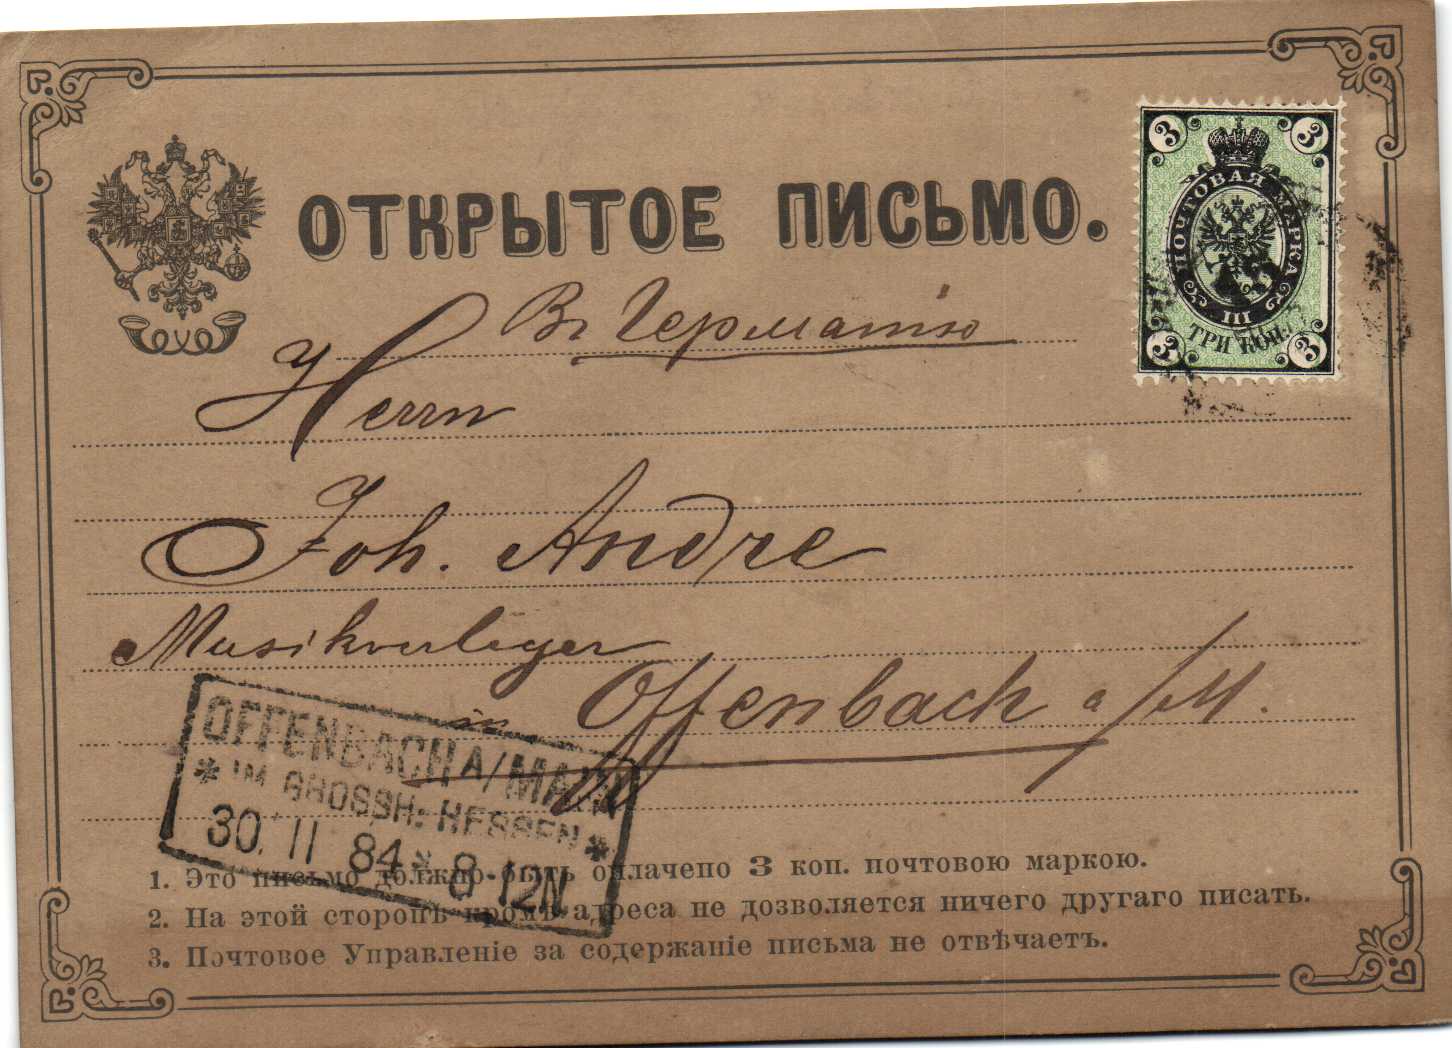 ОТКРЫТОЕ ПИСЬМО.
3 3
ПОЧТОВАЯ МАРКА
III
ТРИ КОП.
3 3
Въ Германію
Herrn
Joh. Andre
Musikverleger
in Offenbach a/M.
OFFENBACH A/MAIN
* IM GROSSH: HESSEN *
30. 11 84 * 8-12N.
1. Это письмо должно быть оплачено 3 коп. почтовою маркою.
2. На этой сторонѣ кромѣ адреса не дозволяется ничего другаго писать.
3. Почтовое Управленіе за содержаніе письма не отвѣчаетъ.